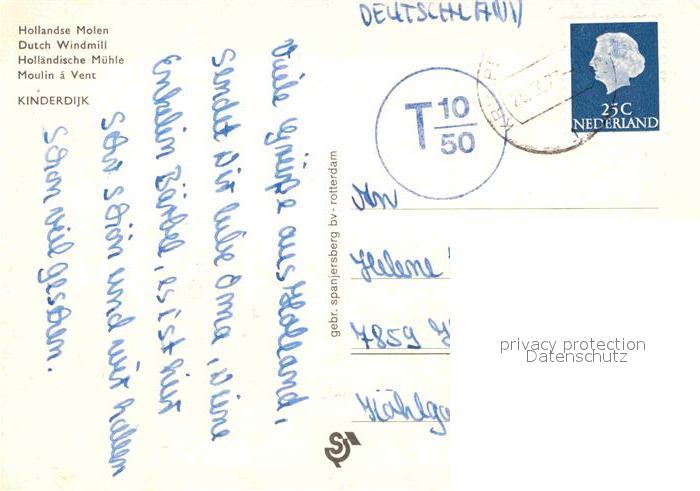 Hollandse Molen
Dutch Windmill
Holländische Mühle
Moulin á Vent
KINDERDIJK
Viele Grüße aus Holland,
sendet Dir liebe Oma, Deine
Enkelin Bärbel, es ist hier
sehr schön und wir haben
schon viel gesehen.
gebr. spanjersberg bv - rotterdam
DEUTSCHLAND
T 10/50
25C
NEDERLAND
An
Helene
7859
privacy protection
Datenschutz